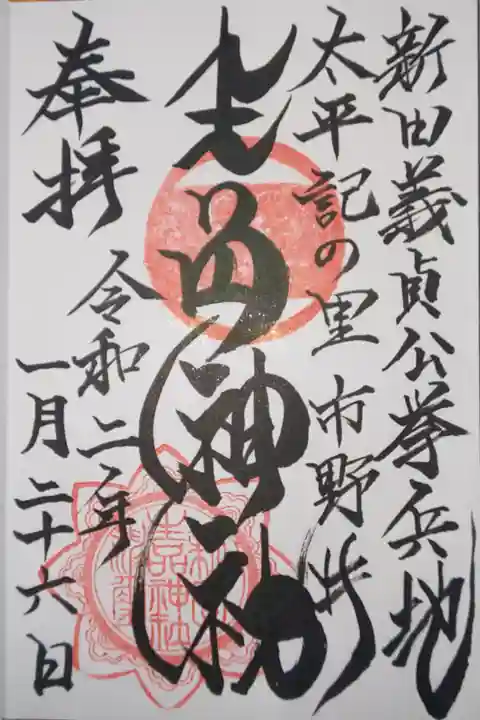 新田義貞公挙兵地
太平記の里市野井
生品神社
奉拝
令和二年
一月二十六日